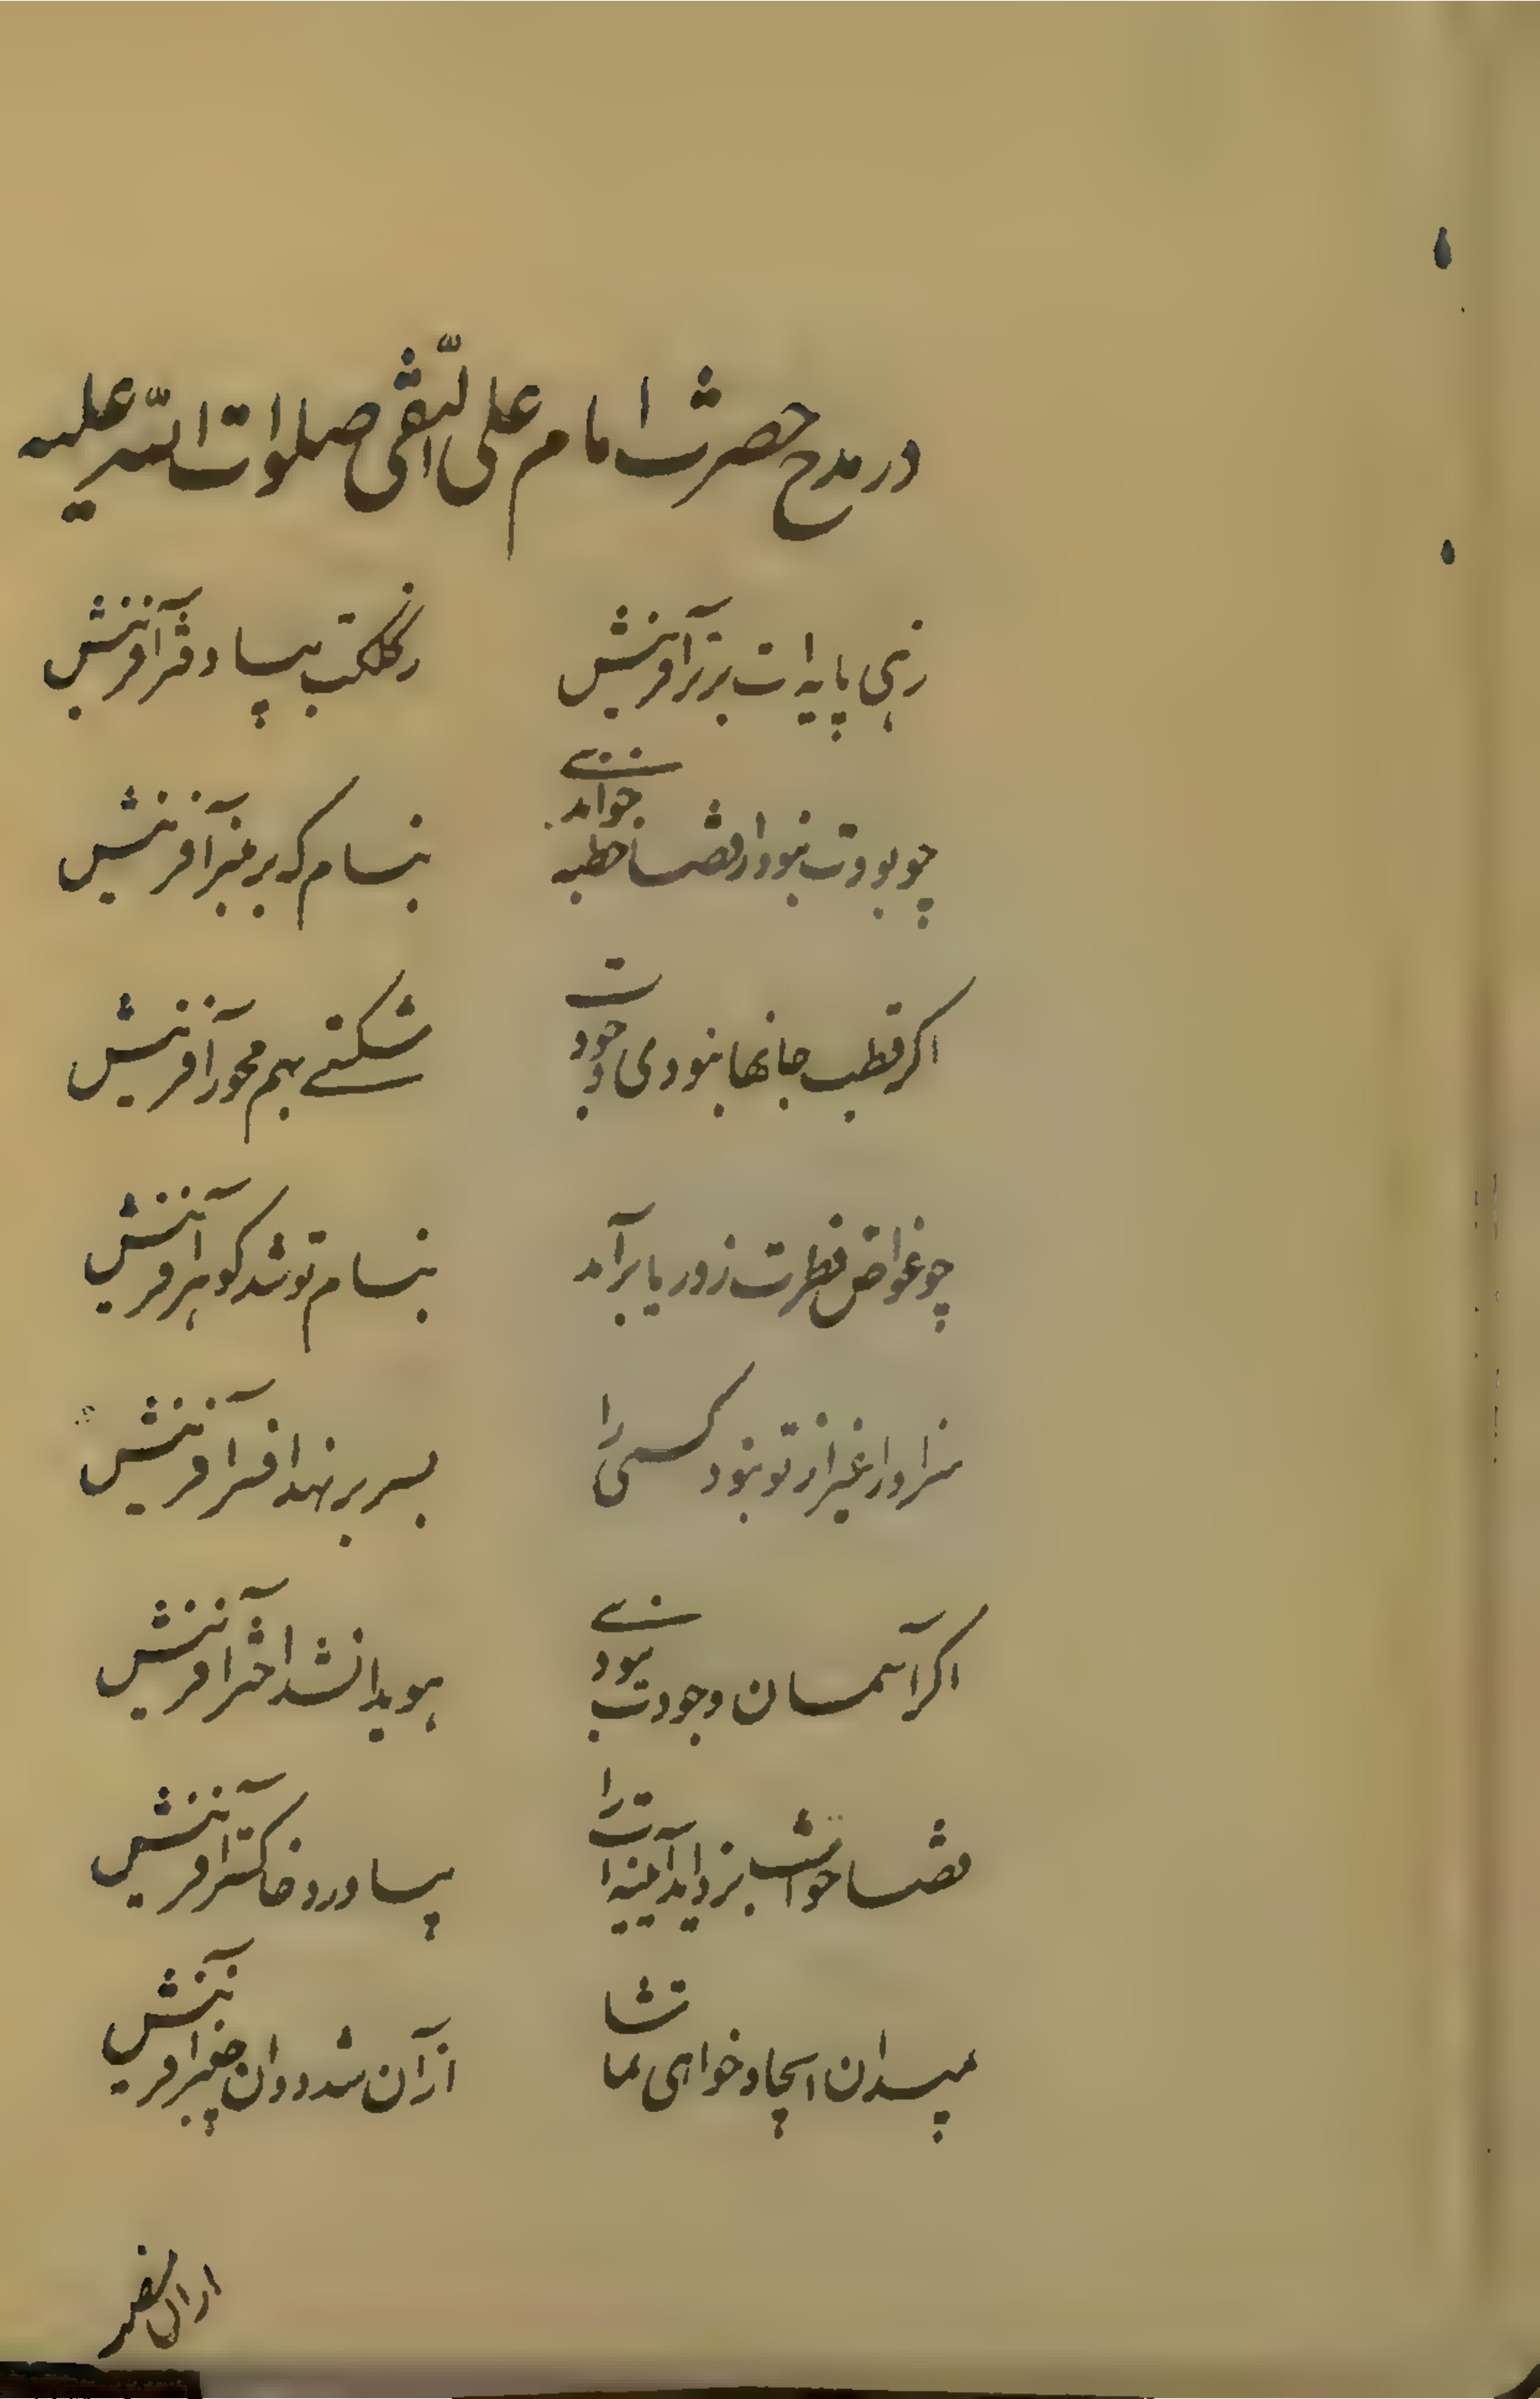 در مدح حضرت امام علی النّقی صلوات اللّه علیه
زهی پایه ات برتر آفرینش ز کلکت بپا دفتر آفرینش
چو بودت نبود از قضا خطبه خواندی بنام که بر منبر آفرینش
اگر قطب جانها نبودی وجودت شکستی بهم محور آفرینش
چو غواص فطرت ز دریا برآمد بنام تو شد گوهر آفرینش
سزاوار غیر از تو نبود کسی را بسر بر نهد افسر آفرینش
اگر آسمان وجودت نبودی هویدا نشد اختر آفرینش
قضا خواست بزداید آیینه ات را بیاورد خاکستر آفرینش
بمیدان ایجاد خواهی تماشا از آن شد دوان آفرینش
از آن